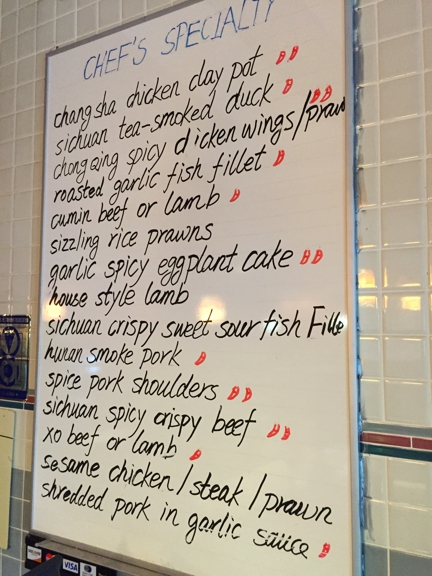 CHEF'S SPECIALTY
changsha chicken clay pot
sichuan tea-smoked duck
chongqing spicy dicken wings/prawn
roasted garlic fish fillet
cumin beef or lamb
sizzling rice prawns
garlic spicy eggplant cake
house style lamb
sichuan crispy sweet sour fish Fille
hunan smoke pork
spice pork shoulders
sichuan spicy crispy beef
xo beef or lamb
sesame chicken/steak/prawn
shredded pork in garlic sauce
VISA